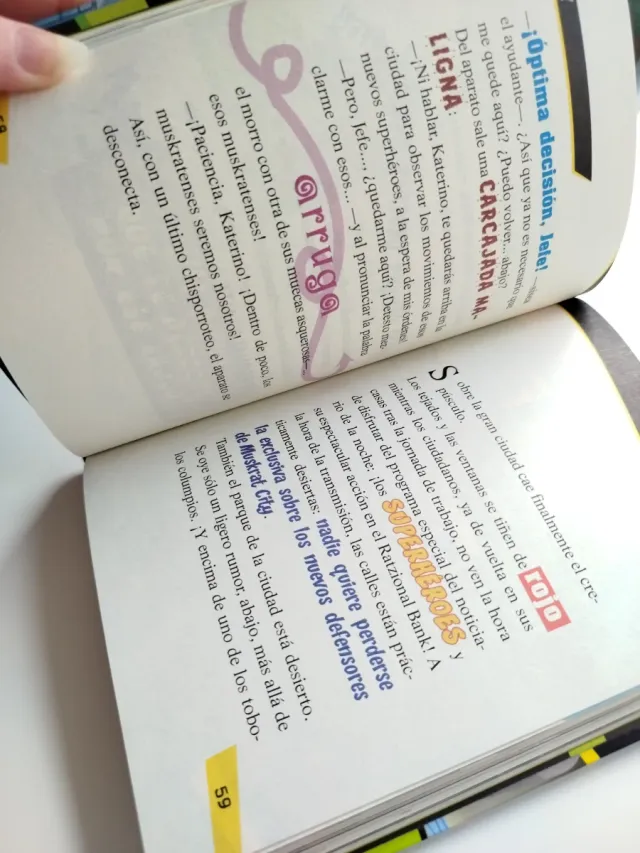 —¡Óptima decisión, Jefe!
el ayudante—. ¿Así que ya no es necesario que
me quede aquí? ¿Puedo volver... abajo?
Del aparato sale una CARCAJADA MA-
LIGNA:
—¡Ni hablar, Katerino, te quedarás arriba en la
ciudad para observar los movimientos de esos
nuevos superhéroes, a la espera de mis órdenes!
—Pero, Jefe..., ¿quedarme aquí? ¡Detesto mez-
clarme con esos... —y al pronunciar la palabra
arruga
el morro con otra de sus muecas asquerosas—
esos muskratenses!
—¡Paciencia, Katerino! ¡Dentro de poco, los
muskratenses seremos nosotros!
Así, con un último chisporroteo, el aparato se
desconecta.
Sobre la gran ciudad cae finalmente el cre-
púsculo.
Los tejados y las ventanas se tiñen de rojo
mientras los ciudadanos, ya de vuelta en sus
casas tras la jornada de trabajo, no ven la hora
de disfrutar del programa especial del noticia-
rio de la noche: ¡los SUPERHÉROES y
su espectacular acción en el Ratzional Bank! A
la hora de la transmisión, las calles están prác-
ticamente desiertas: nadie quiere perderse
la exclusiva sobre los nuevos defensores
de Muskrat City.
También el parque de la ciudad está desierto.
Se oye sólo un ligero rumor, abajo, más allá de
los columpios. ¡Y encima de uno de los tobo-
59